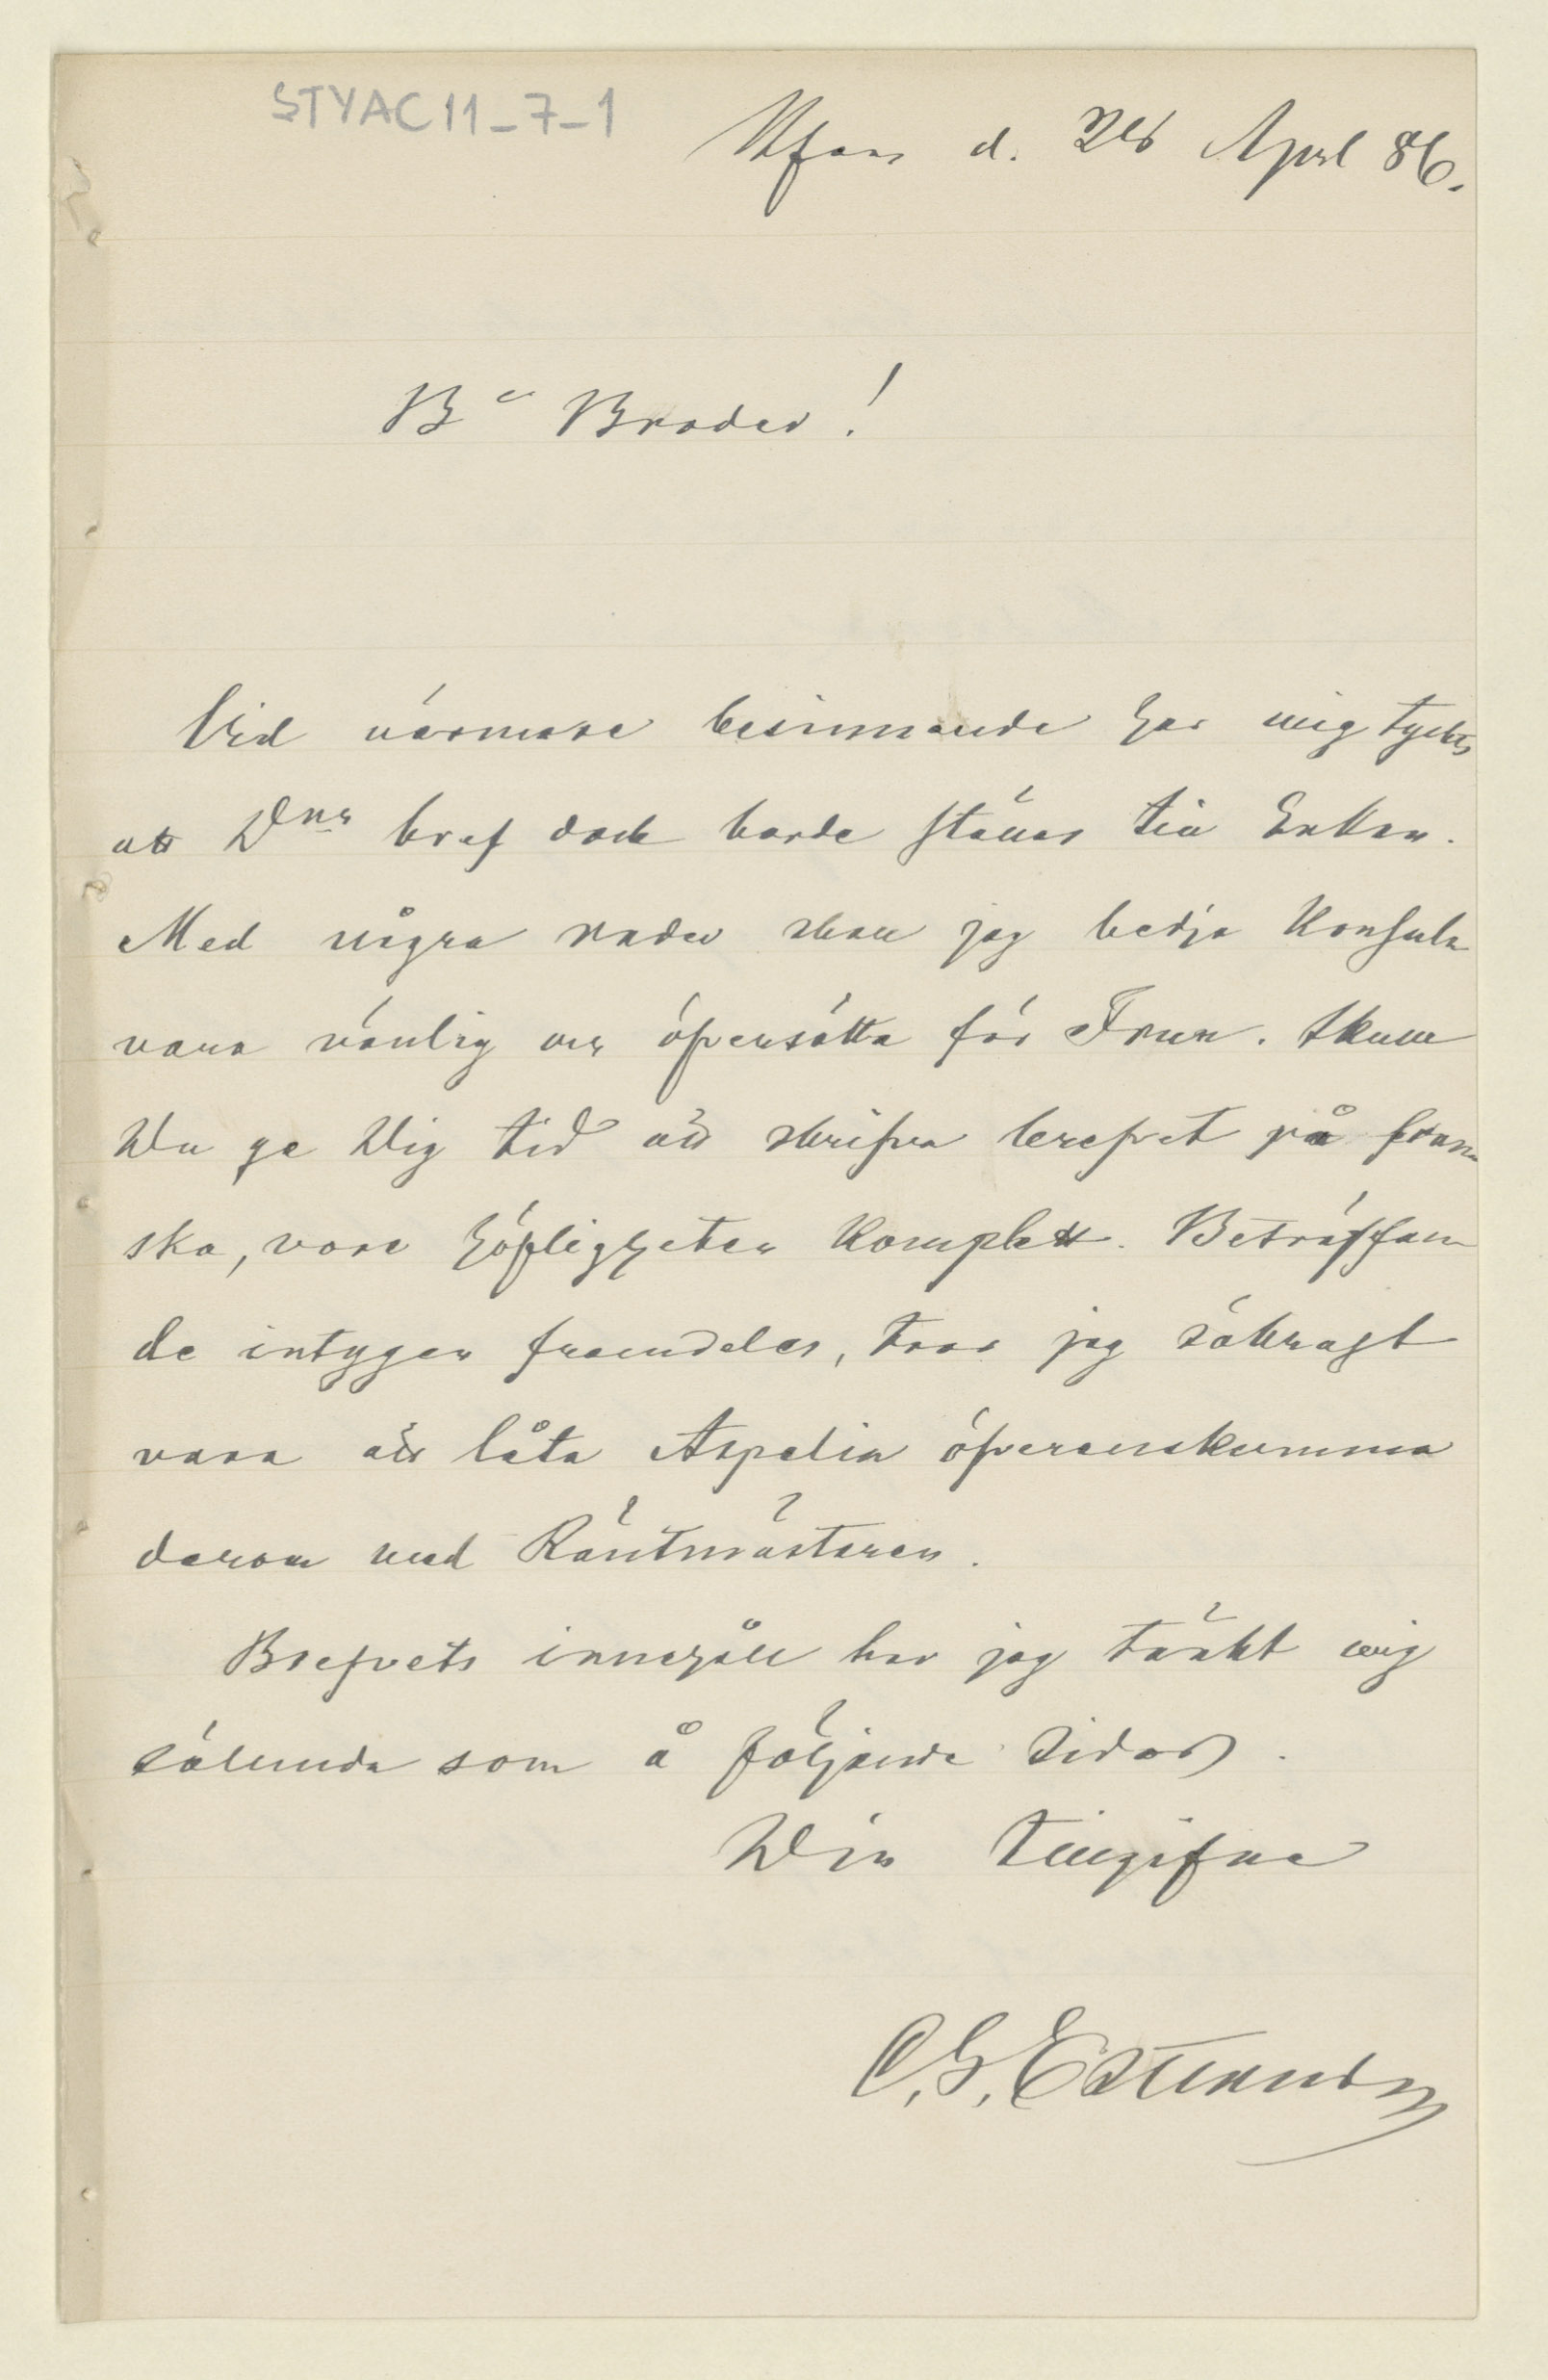 STYAC11_7_1
Hfors d. April 86.
B. Broder!
Vid närmare besinnande har mig tyckts
att bref dock borde ställas till Enkan.
Med några rader skall jag bedja Konsuln
vara vänlig och öfversätta för Frun. Skulle
Du ge Dig tid att skrifva brefvet på fran-
ska, vore höfligheten komplett. Beträffan-
de intygen framdeles, tror jag säkrast
vara att låta Aspelin öfverenskomma
derom med Räntmästaren.
Brefvets innehåll har jag tänkt mig
sålunda som å följande sidor.
Din tillgifne
C. G. Estlander